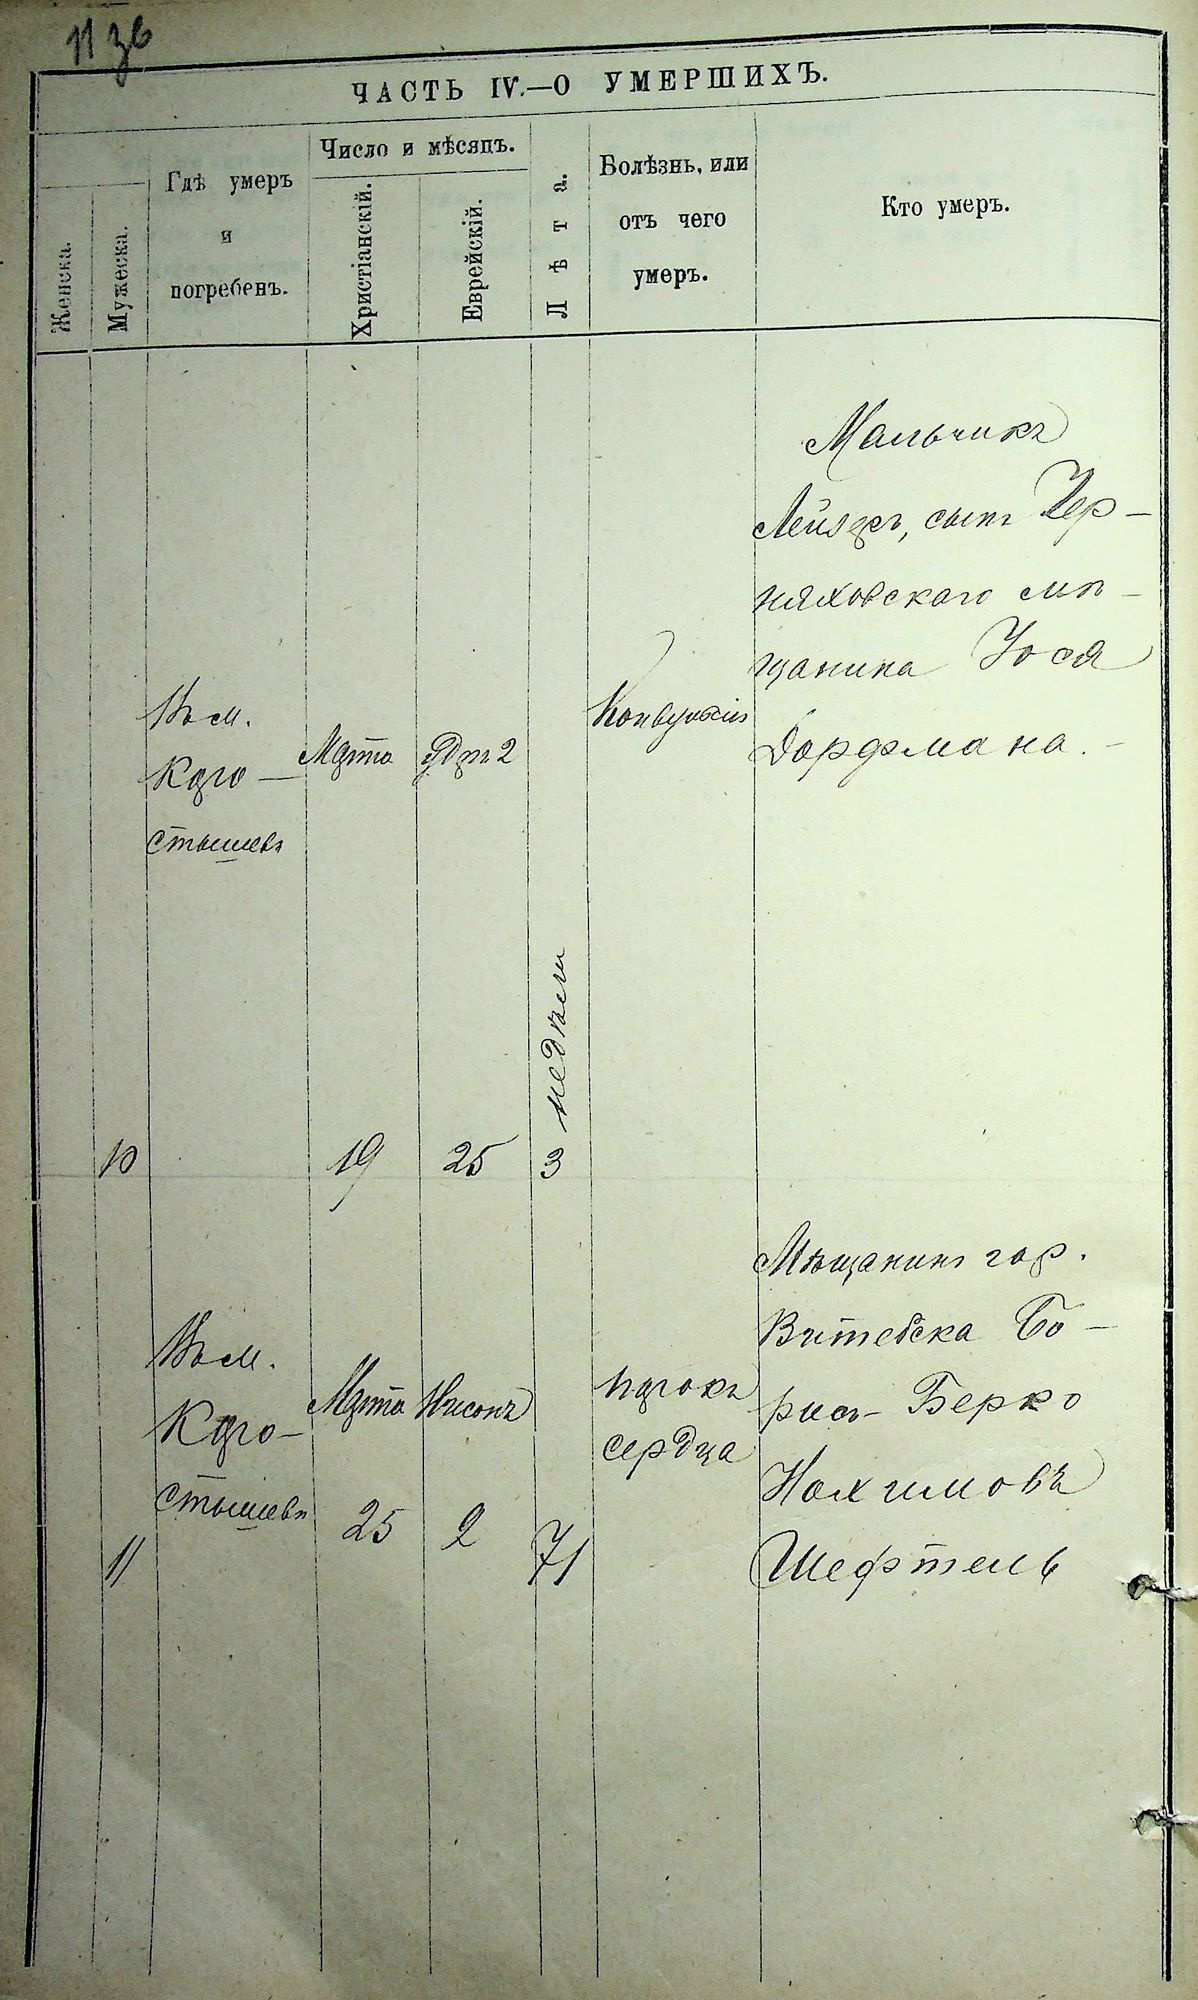 ЧАСТЬ IV.—О УМЕРШИХЪ.
Женска.
Мужеска.
Гдѣ умеръ
и
погребенъ.
Число и мѣсяцъ.
Христіанскій.
Еврейскій.
Лѣта.
Болѣзнь, или
отъ чего
умеръ.
Кто умеръ.
10
Въ м.
Коро-
стышевъ
Марта
19
Адаръ 2
25
3 недѣли
Конвульсіи
Мальчикъ
Лейзеръ, сынъ Чер-
няховскаго мѣ-
щанина Іося
Дорфмана.
11
Въ м.
Коро-
стышевъ
Марта
25
Нисонъ
2
71
порокъ
сердца
Мѣщанинъ гор.
Витебска Бо-
рисъ-Берко
Нохимовъ
Шефтель